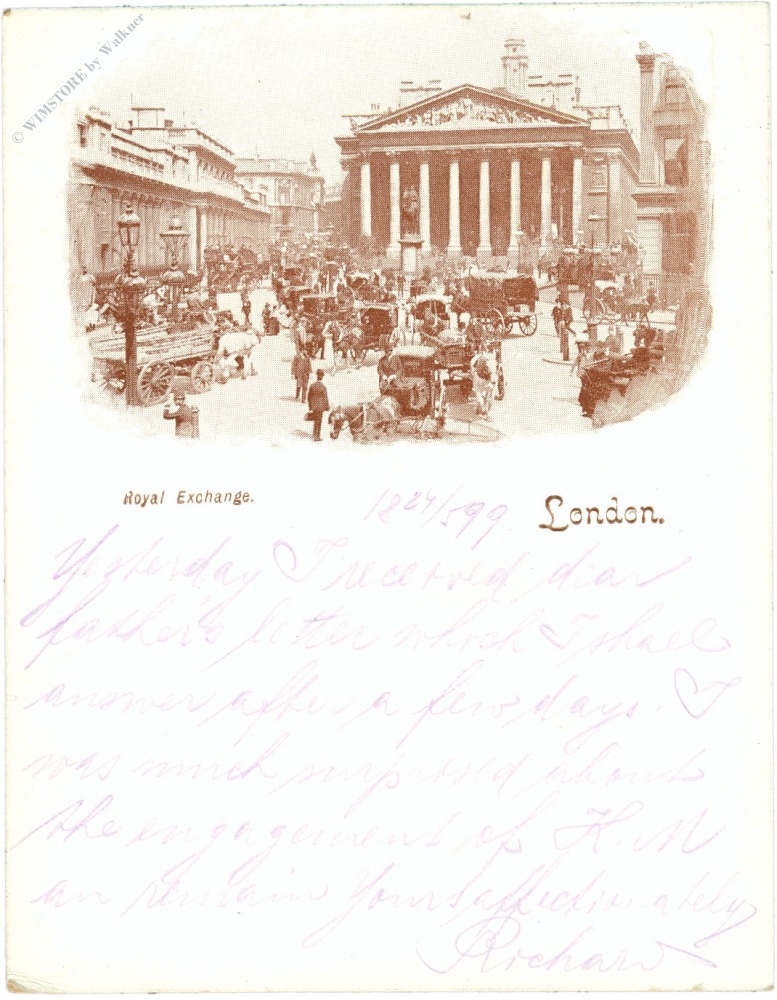 © WIMSTORE by Walkner
Royal Exchange.
18 24/5 99
London.
Yesterday I received dear
father's letter which I shael
answer after a few days. I
was much surprised about
the engagement of H. M
an remain Yours affectionately
Richard